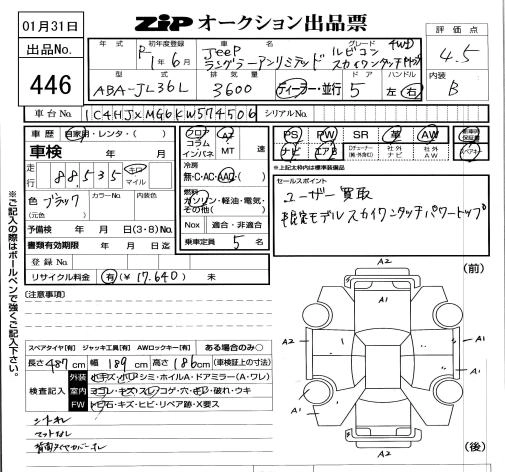 01月31日
出品No.
446
ZIP オークション出品票
評価点
4.5
内装
B
年式 初年度登録 車名 グレード
R 1年 6月 Jeep ルビコン 4WD
ラングラーアンリミテッド スカイワンタッチ
型式 排気量 ドア ハンドル
ABA-JL36L 3600 ディーラー・並行 5 左 右
車台No. 1C4HJXMG6KW574506 シリアルNo.
車歴 自家用・レンタ・( )
車検 年 月
走行 88,535 キロ マイル
色 ブラック カラーNo. 内装色
(元色)
予備検 年 月 日(3・8)No.
書類有効期限 年 月 日迄
登録No.
リサイクル料金 有(¥ 17,640) 未
フロア コラム インパネ AT MT 速
冷房
無・C・AC・AAC・( )
燃料
ガソリン・軽油・電気・その他( )
Nox 適合・非適合
乗車定員 5 名
PS PW SR 革 AW 新車時保証書
ナビ エアB Dチューナー(純・外・含付) 社外ナビ 社外AW スペアキー
*上記太枠内は標準装備品
セールスポイント
ユーザー買取
限定モデル スカイワンタッチパワートップ
[注意事項]
スペアタイヤ[有] ジャッキ工具[有] AWロックキー[有] ある場合のみ○
長さ 487cm 幅 189cm 高さ 186cm (車検証上の寸法)
検査記入
外装 小キズ・小ヘコミ・シミ・ホイルA・ドアミラー(A・ワレ)
室内 ヨゴレ・キズ・スレ・コゲ・穴・キレ・破れ・ウキ
FW トビ石・キズ・ヒビ・リペア跡・X要ス
シートスレ
マットなし
背面タイヤカバースレ
※ご記入の際はボールペンで強くご記入下さい。
(前)
A2
A1
A2
A1
A1
A1
A2
(後)